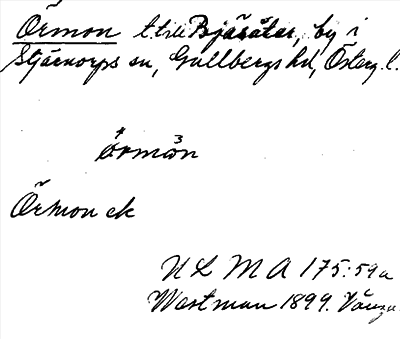 Örmon t. till Bjäsäter, by i
Stjärnorps sn, Gullbergs hd, Österg. l.
örmån
Örmon ek
ULMA 175:59a
Westman 1899. Vånga